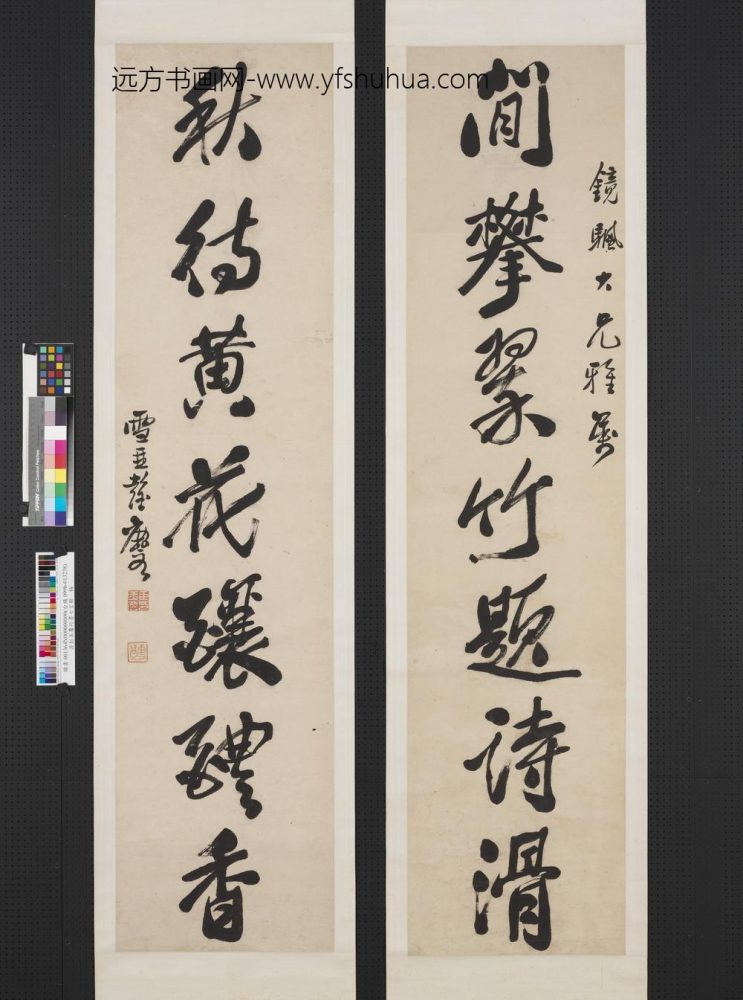 远方书画网-www.yfshuhua.com
鏡颿大兄雅屬
閒攀翠竹題詩滑
秋待黄花釀醴香
雪琴彭麐